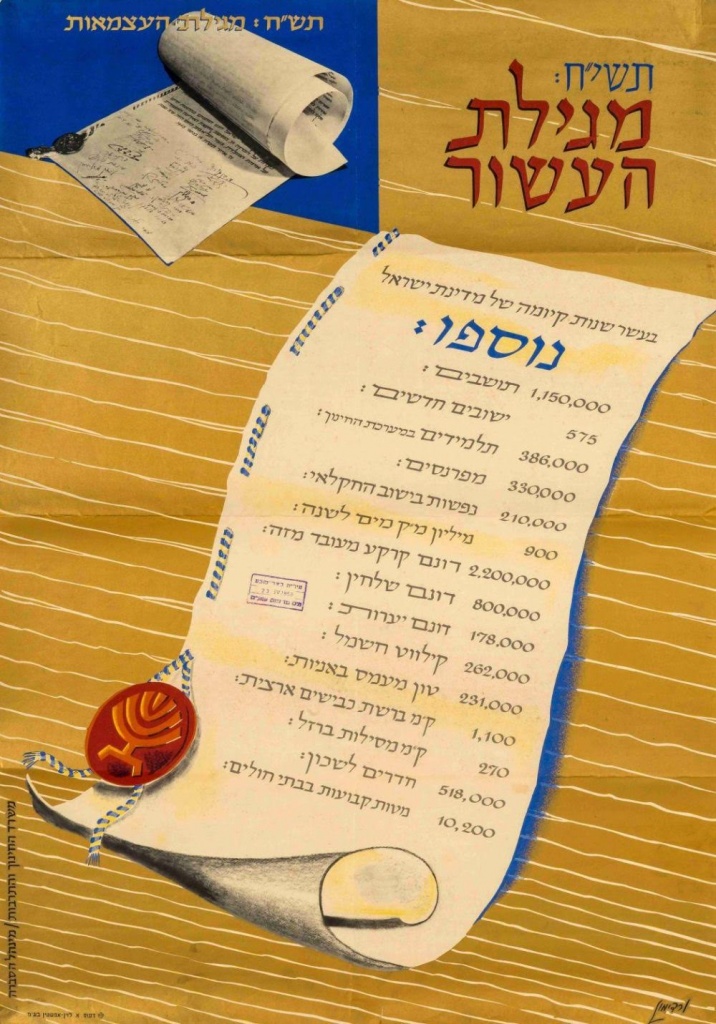 תש"ח: מגילת העצמאות
תשי"ח:
מגילת
העשור
בעשר שנות קיומה של מדינת ישראל
נוספו:
1,150,000 תושבים:
575 ישובים חדשים:
386,000 תלמידים במערכת החינוך:
330,000 מפרנסים:
210,000 נפשות בישוב החקלאי:
900 מיליון מ"ק מים לשנה:
2,200,000 דונם קרקע מעובד מזה:
800,000 דונם שלחין:
178,000 דונם יערות:
262,000 קילווט חשמל:
231,000 טון מעמס באניות:
1,100 ק"מ ברשת כבישים ארצית:
270 ק"מ מסילות ברזל:
518,000 חדרים לשכון:
10,200 מטות קבועות בבתי חולים:
משרד החינוך והתרבות / מינהל הסברה